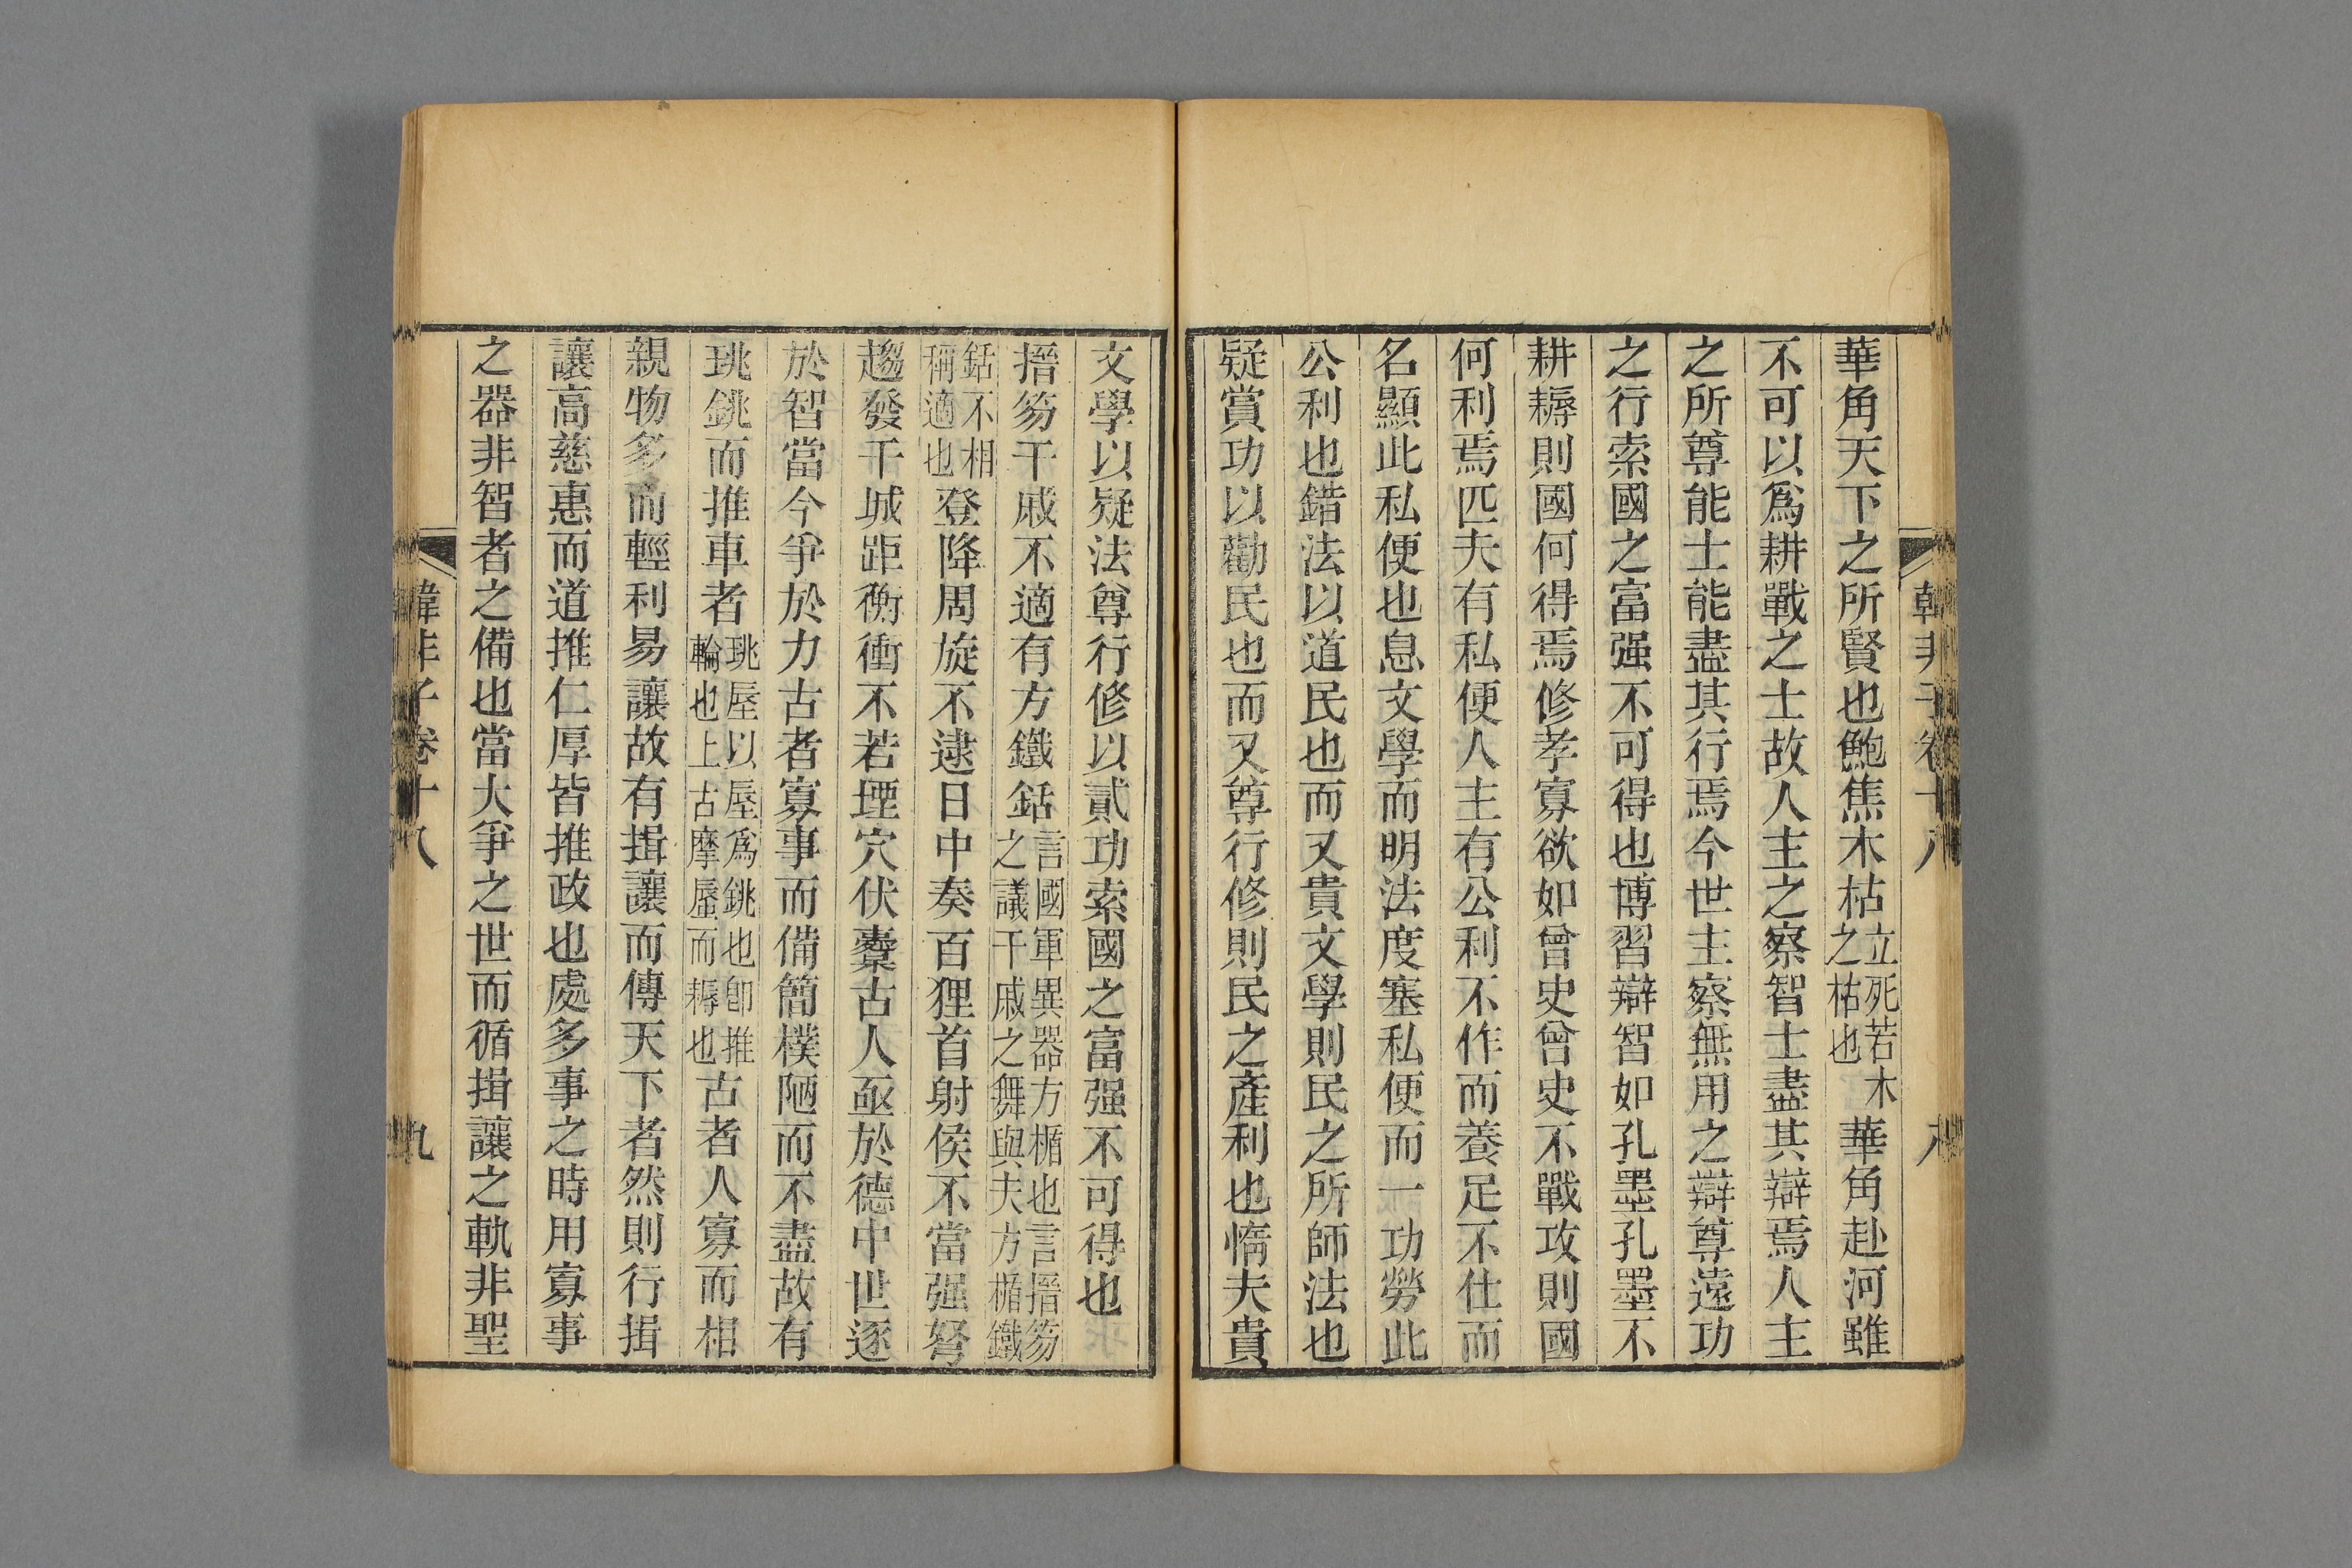 韓非子卷十八
八
華角天下之所賢也鮑焦木枯立死若木之枯也華角赴河雖
不可以爲耕戰之士故人主之察智士盡其辯焉人主
之所尊能士能盡其行焉今世主察無用之辯尊遠功
之行索國之富强不可得也博習辯智如孔墨孔墨不
耕耨則國何得焉修孝寡欲如曾史曾史不戰攻則國
何利焉匹夫有私便人主有公利不作而養足不仕而
名顯此私便也息文學而明法度塞私便而一功勞此
公利也錯法以道民也而又貴文學則民之所師法也
疑賞功以勸民也而又尊行修則民之產利也惰夫貴
文學以疑法尊行修以貳功索國之富强不可得也
搢笏干戚不適有方鐵銛言國軍異器方楯也言搢笏之議干戚之舞與夫方楯鐵
銛不相稱適也登降周旋不逮日中奏百狸首射侯不當强弩
趨發干城距衡衝不若堙穴伏橐古人亟於德中世逐
於智當今爭於力古者寡事而備簡樸陋而不盡故有
珧銚而推車者珧蜃以蜃爲銚也卽推輪也上古摩蜃而耨也古者人寡而相
親物多而輕利易讓故有揖讓而傳天下者然則行揖
讓高慈惠而道推仁厚皆推政也處多事之時用寡事
之器非智者之備也當大爭之世而循揖讓之軌非聖
韓非子卷十八
九